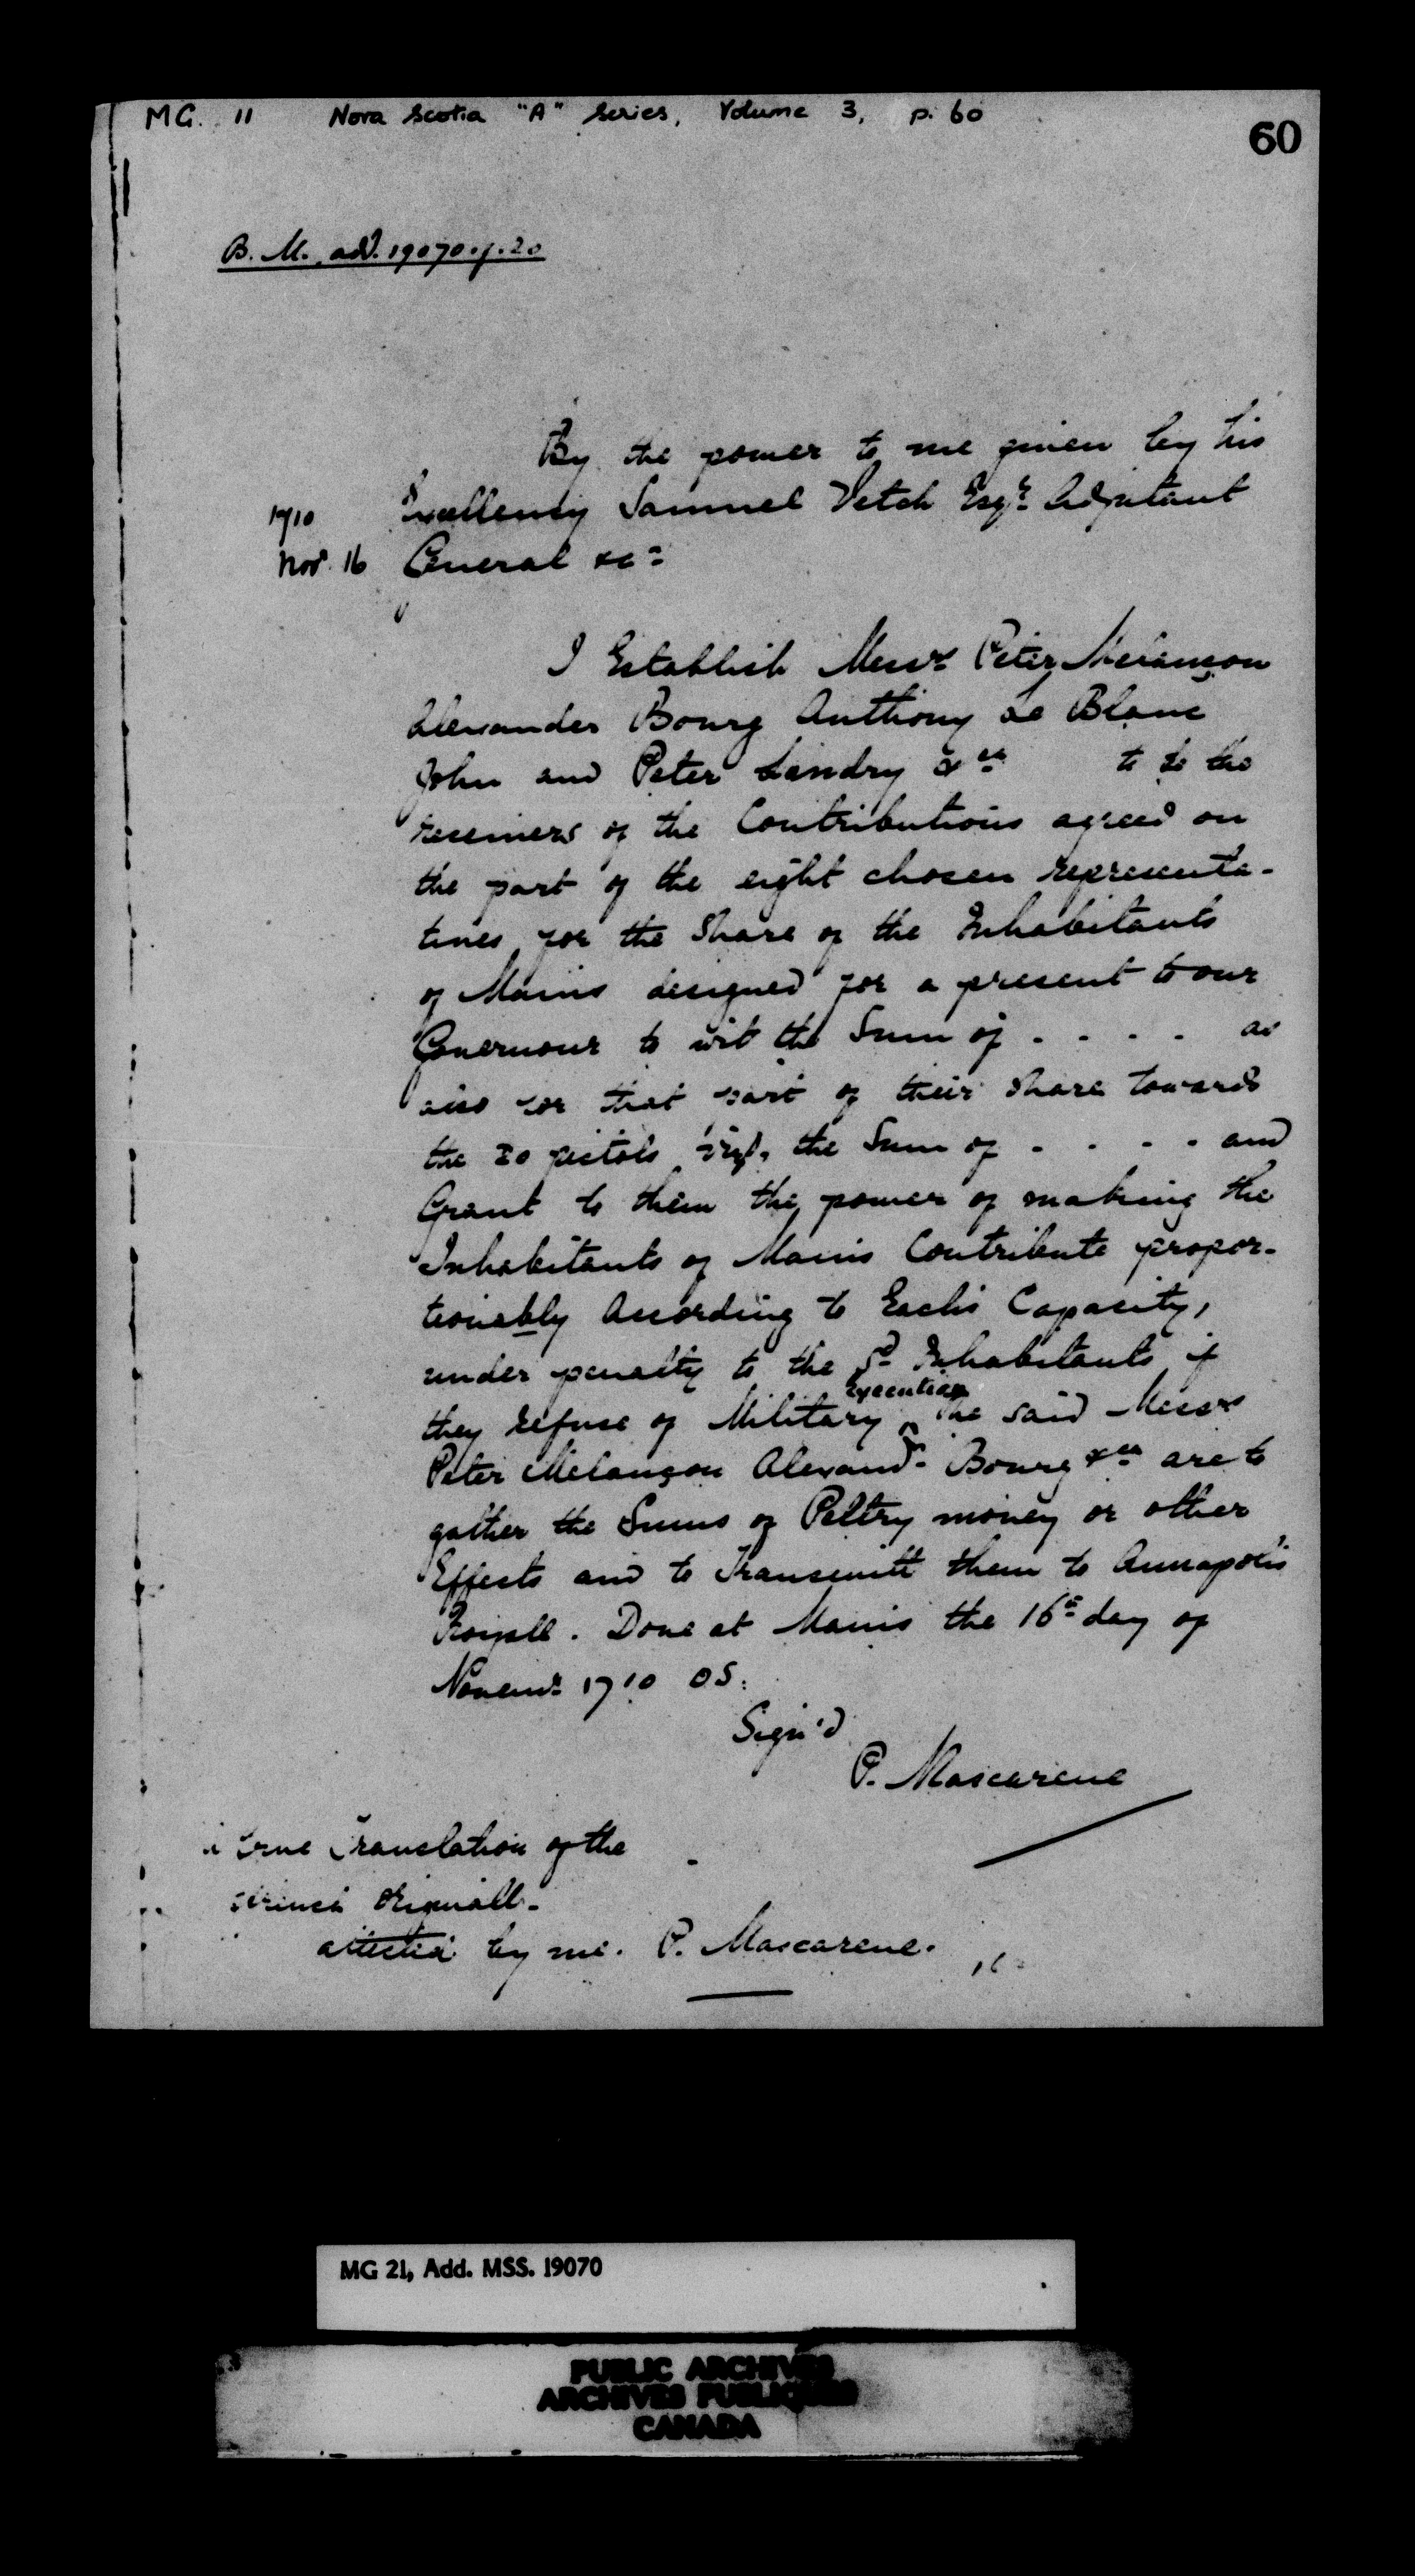 MG. 11 Nova Scotia "A" Series, Volume 3, p. 60
60
B. M. add. 19070. f. 20
By the power to me given by his
1710 Excellency Samuel Vetch Esqr. Adjutant
Novr. 16 General &ca
I Establish Messrs Peter Melançon
Alexander Bourg Anthony Le Blanc
John and Peter Landry &ca to be the
receivers of the Contributions agreed on
the part of the eight chosen representa-
tives for the Share of the Inhabitants
of Manis designed for a present to our
Governour to wit the Sum of . . . . as
also for that part of their share towards
the 20 pistols the Sum of . . . . and
Grant to them the power of making the
Inhabitants of Manis Contribute propor-
tionably According to Eachs Capacity,
under penalty to the Sd Inhabitants if
they refuse of Military Execution the said Messrs
Peter Melançon Alexandr Bourg &ca are to
gather the Sums of Peltry money or other
Effects and to Transmitt them to Annapolis
Royall. Done at Manis the 16th day of
Novemr 1710 OS.
Sign'd
P. Mascarene
a true Translation of the
french Originall.
attested by me. P. Mascarene.
MG 21, Add. MSS. 19070
PUBLIC ARCHIVES
ARCHIVES PUBLIQUES
CANADA